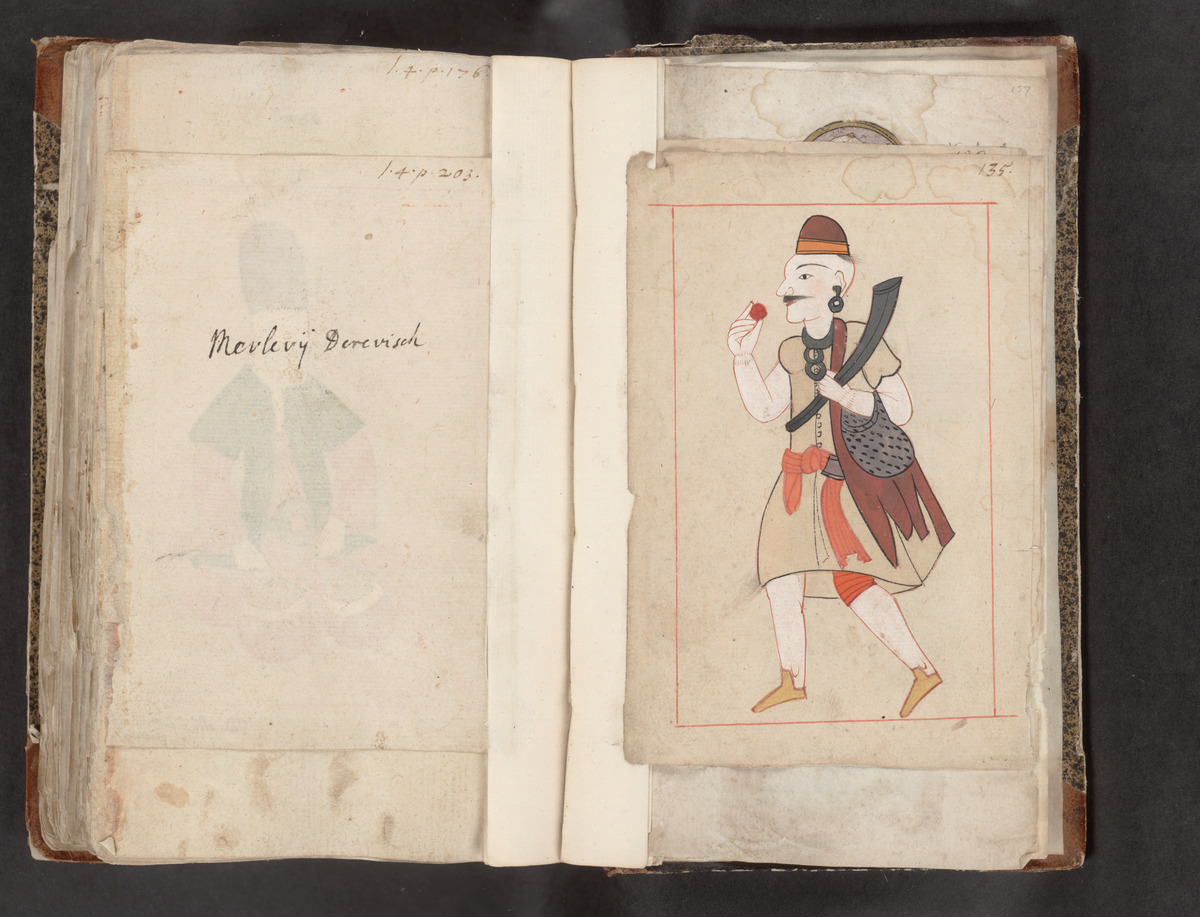 l. 4. p. 176.
l. 4. p. 203.
Mevlevij Derevisch
157
135.